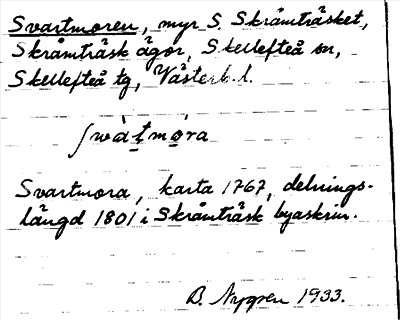 Svartmoren, myr S. Skråmträsket,
Skråmträsk ägor, Skellefteå sn,
Skellefteå tg, Västerb. l.
ʃwàṭmọ́ra
Svartmora, karta 1767, delnings-
längd 1801 i Skråmträsk byaskrin.
B. Nygren 1933.